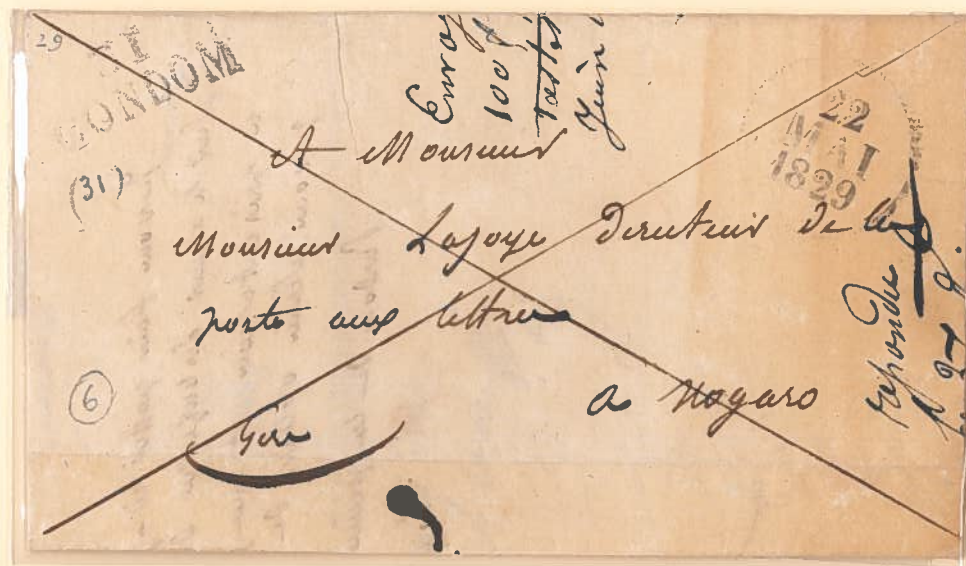 29
31
CONDOM
(31)
22
MAI
1829
A Monsieur
Monsieur Lafoye Directeur de la
poste aux lettres
a Nogaro
Gers
6
100 f
repondu